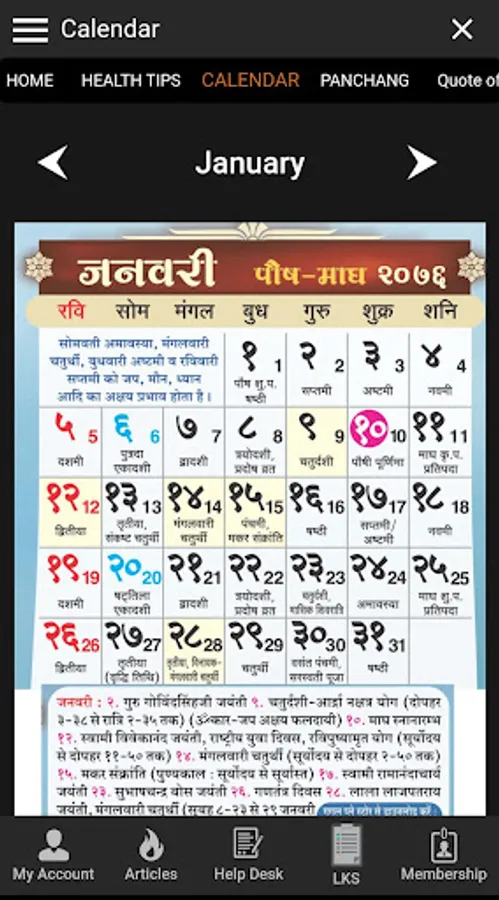 Calendar
HOME HEALTH TIPS CALENDAR PANCHANG Quote of
January
जनवरी पौष-माघ २०७६
रवि सोम मंगल बुध गुरु शुक्र शनि
सोमवती अमावस्या, मंगलवारी
चतुर्थी, बुधवारी अष्टमी व रविवारी
सप्तमी को जप, मौन, ध्यान
आदि का अक्षय प्रभाव होता है।
१ 1 २ 2 ३ 3 ४ 4
पौष शु.प. षष्ठी सप्तमी अष्टमी नवमी
५ 5 ६ 6 ७ 7 ८ 8 ९ 9 १० 10 ११ 11
दशमी पुत्रदा एकादशी द्वादशी त्रयोदशी, प्रदोष व्रत चतुर्दशी पौषी पूर्णिमा माघ कृ.प. प्रतिपदा
१२ 12 १३ 13 १४ 14 १५ 15 १६ 16 १७ 17 १८ 18
द्वितीया तृतीया, संकष्ट चतुर्थी मंगलवारी चतुर्थी पंचमी, मकर संक्रांति षष्ठी सप्तमी/ अष्टमी नवमी
१९ 19 २० 20 २१ 21 २२ 22 २३ 23 २४ 24 २५ 25
दशमी षट्तिला एकादशी द्वादशी त्रयोदशी, प्रदोष व्रत चतुर्दशी, मासिक शिवरात्रि अमावस्या माघ शु.प. प्रतिपदा
२६ 26 २७ 27 २८ 28 २९ 29 ३० 30 ३१ 31
द्वितीया तृतीया (वृद्धि तिथि) तृतीया, विनायक-मंगलवारी चतुर्थी चतुर्थी वसंत पंचमी, सरस्वती पूजा षष्ठी
जनवरी : २. गुरु गोविंदसिंहजी जयंती ९. चतुर्दशी-आर्द्रा नक्षत्र योग (दोपहर
३-३८ से रात्रि २-३५ तक) (ॐकार-जप अक्षय फलदायी) १०. माघ स्नानारम्भ
१२. स्वामी विवेकानंद जयंती, राष्ट्रीय युवा दिवस, रविपुष्यामृत योग (सूर्योदय
से दोपहर ११-५० तक) १४. मंगलवारी चतुर्थी (सूर्योदय से दोपहर २-५० तक)
१५. मकर संक्रांति (पुण्यकाल : सूर्योदय से सूर्यास्त) १७. स्वामी रामानंदाचार्य
जयंती २३. सुभाषचन्द्र बोस जयंती २६. गणतंत्र दिवस २८. लाला लाजपतराय
जयंती, मंगलवारी चतुर्थी (सुबह ८-२३ से २९ जनवरी
My Account Articles Help Desk LKS Membership